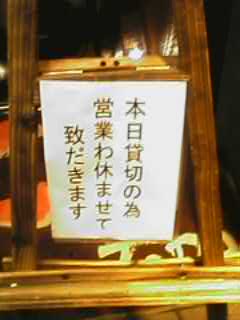 本日貸切の為
営業わ休ませて
致だきます